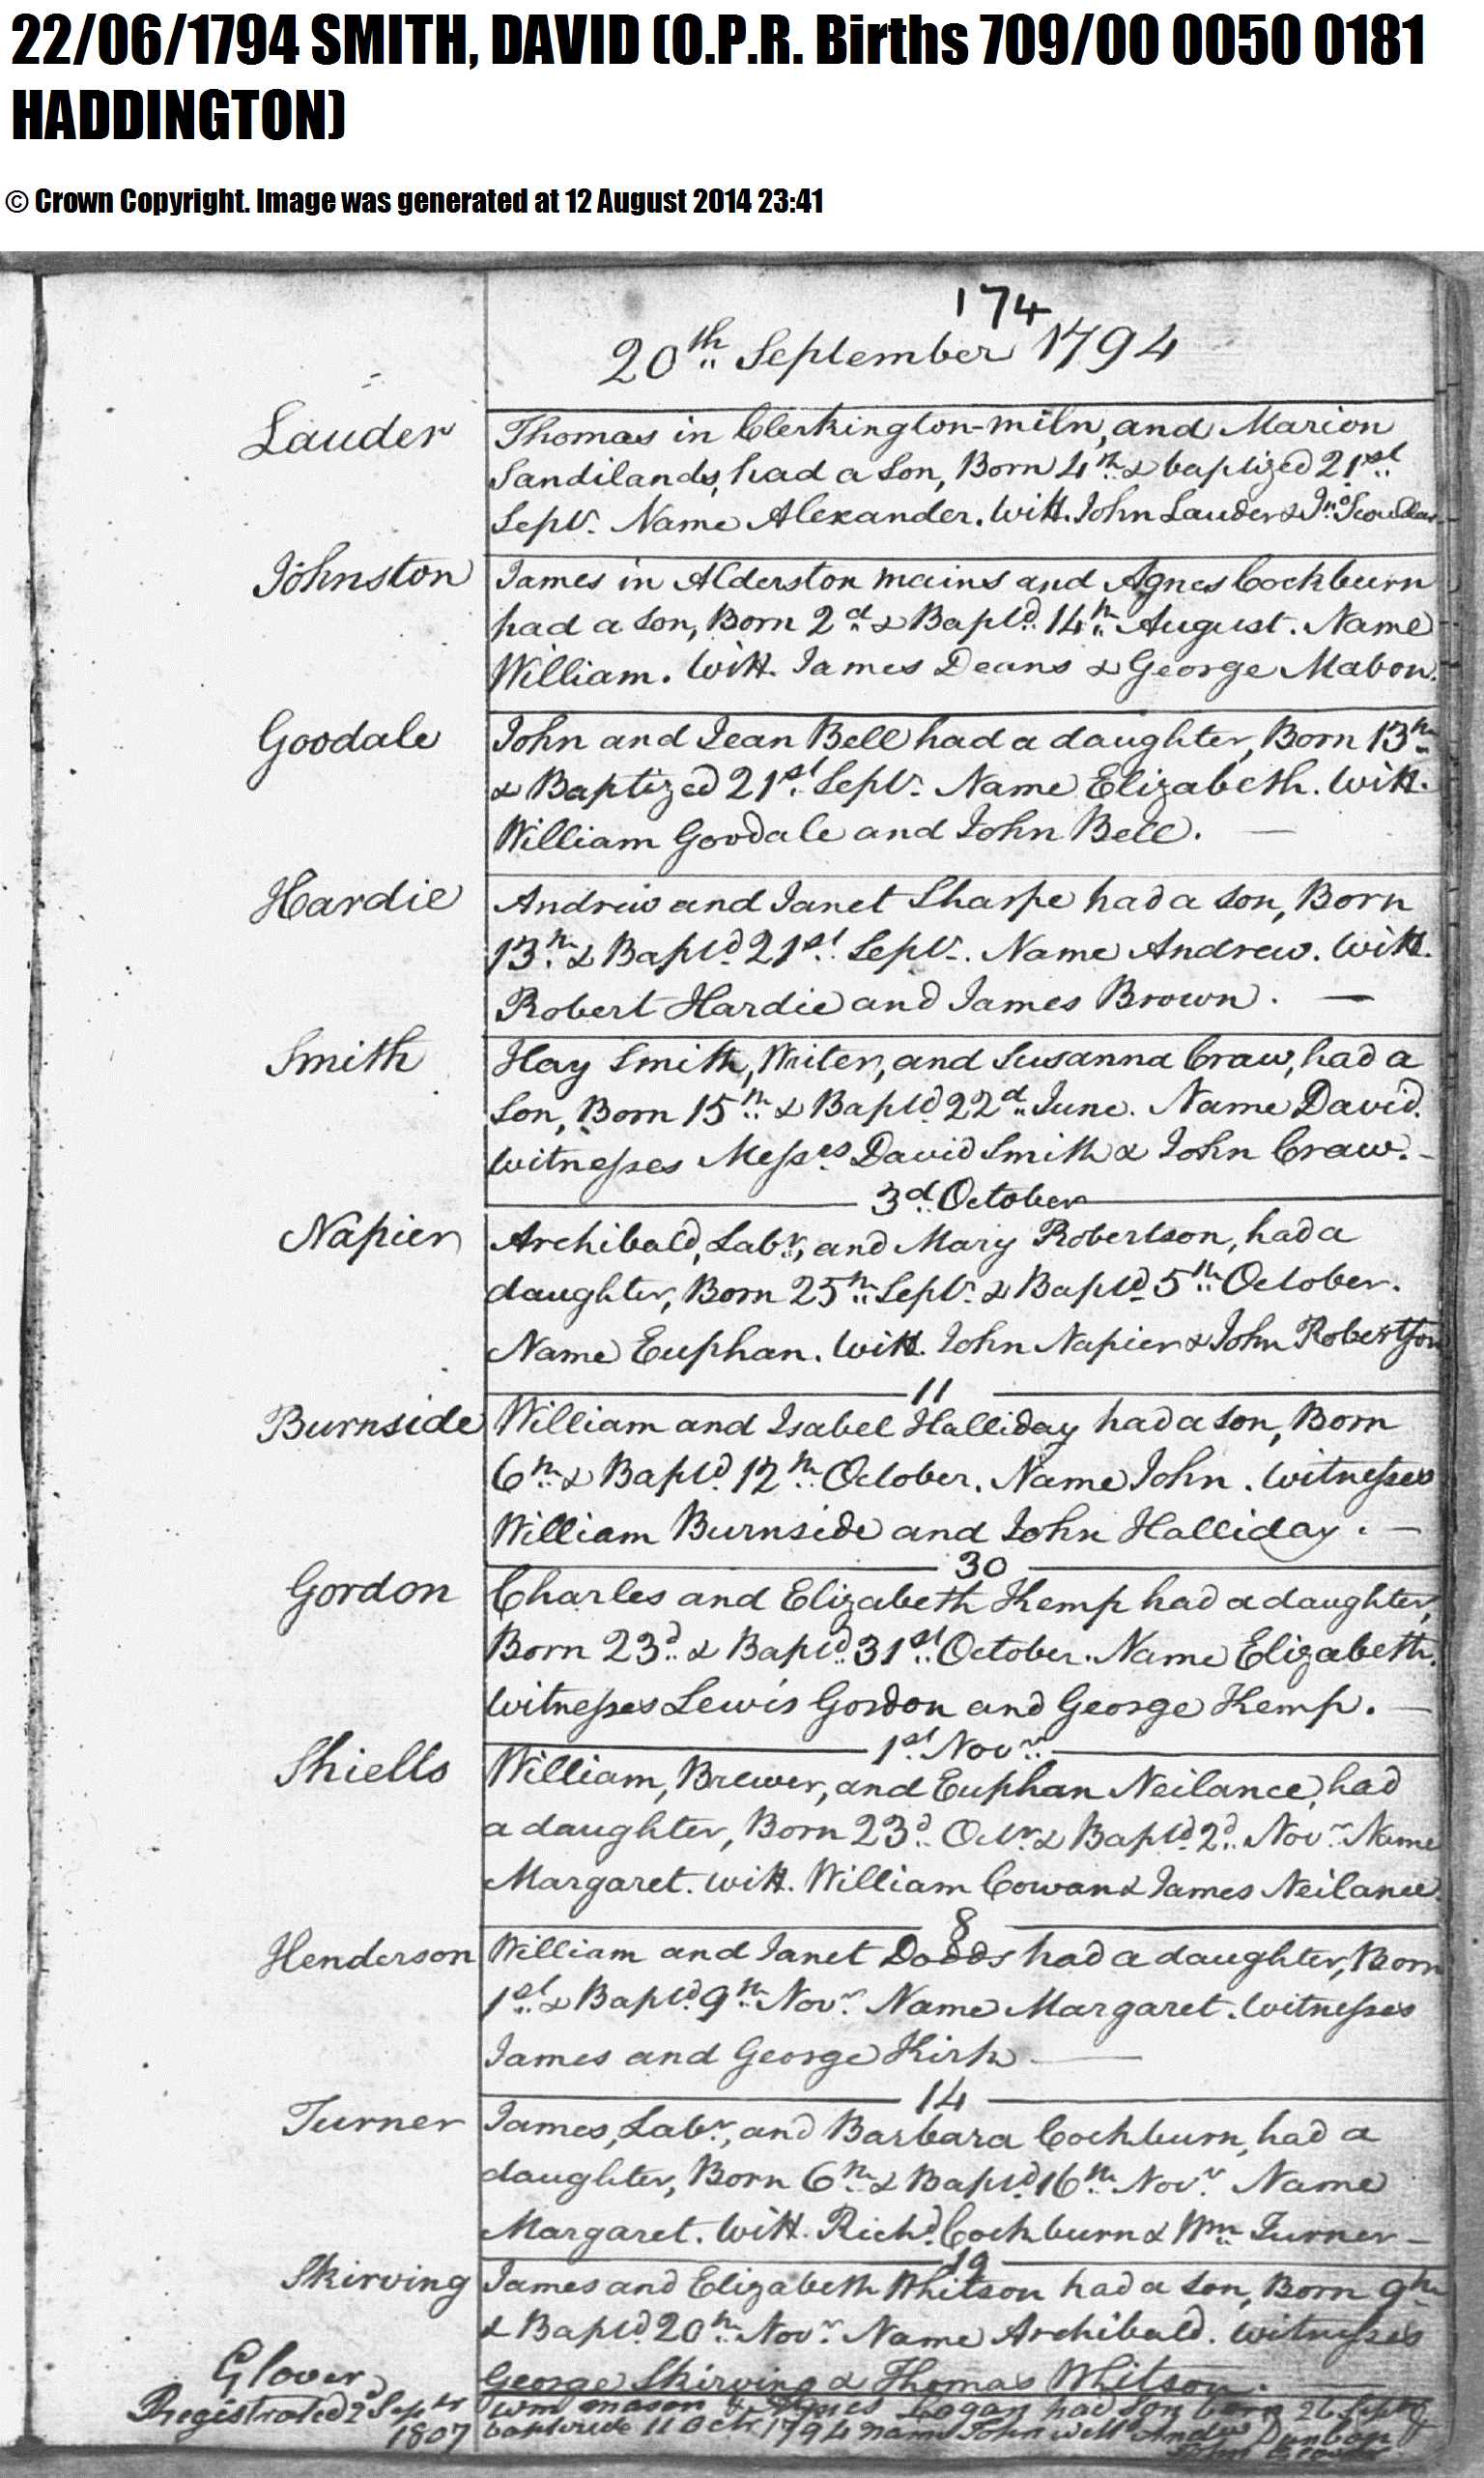 22/06/1794 SMITH, DAVID (O.P.R. Births 709/00 0050 0181
HADDINGTON)
© Crown Copyright. Image was generated at 12 August 2014 23:41
174
20th September 1794
Lauder
Thomas in Clerkington-miln, and Marion
Sandilands, had a Son, Born 4th & baptized 21st
Septr. Name Alexander. Witt. John Lauder & Jno Scoullar
Johnston
James in Alderston mains and Agnes Cockburn
had a Son, Born 2d & Baptd. 14th August. Name
William. Witt. James Deans & George Mabon.
Goodale
John and Jean Bell had a daughter, Born 13th
& Baptized 21st Septr. Name Elizabeth. Witt.
William Goodale and John Bell.
Hardie
Andrew and Janet Sharpe had a Son, Born
13th & Baptd. 21st Septr. Name Andrew. Witt.
Robert Hardie and James Brown.
Smith
Hay Smith, Writer, and Susanna Craw, had a
Son, Born 15th & Baptd 22d June. Name David.
Witnesses Messrs David Smith & John Craw.
3d October
Napier
Archibald, Labr, and Mary Robertson, had a
daughter, Born 25th Septr. & Baptd 5th October.
Name Euphan. Witt. John Napier & John Robertson
11
Burnside
William and Isabel Halliday had a Son, Born
6th & Baptd. 12th October. Name John. Witnesses
William Burnside and John Halliday.
30
Gordon
Charles and Elizabeth Kemp had a daughter,
Born 23d & Baptd. 31st October. Name Elizabeth.
Witnesses Lewis Gordon and George Kemp.
1st Novr
Shiells
William, Brewer, and Euphan Neilance, had
a daughter, Born 23d Octr & Baptd 2d Novr Name
Margaret. Witt. William Cowan & James Neilance.
8
Henderson
William and Janet Dodds had a daughter, Born
1st & Baptd. 9th Novr Name Margaret. Witnesses
James and George Kirk
14
Turner
James, Labr, and Barbara Cockburn, had a
daughter, Born 6th & Baptd. 16th Novr Name
Margaret. Witt. Richd. Cockburn & Wm Turner
19
Skirving
James and Elizabeth Whitson had a Son, Born 9th
& Baptd. 20th Novr Name Archibald. Witnesses
George Skirving & Thomas Whitson.
Glover
Registrated 2d Septr
1807
Wm mason & Agnes Logan had Son born 26 Septr
baptized 11 Octr. 1794 name John Witt Andw Dunbar
John Glover